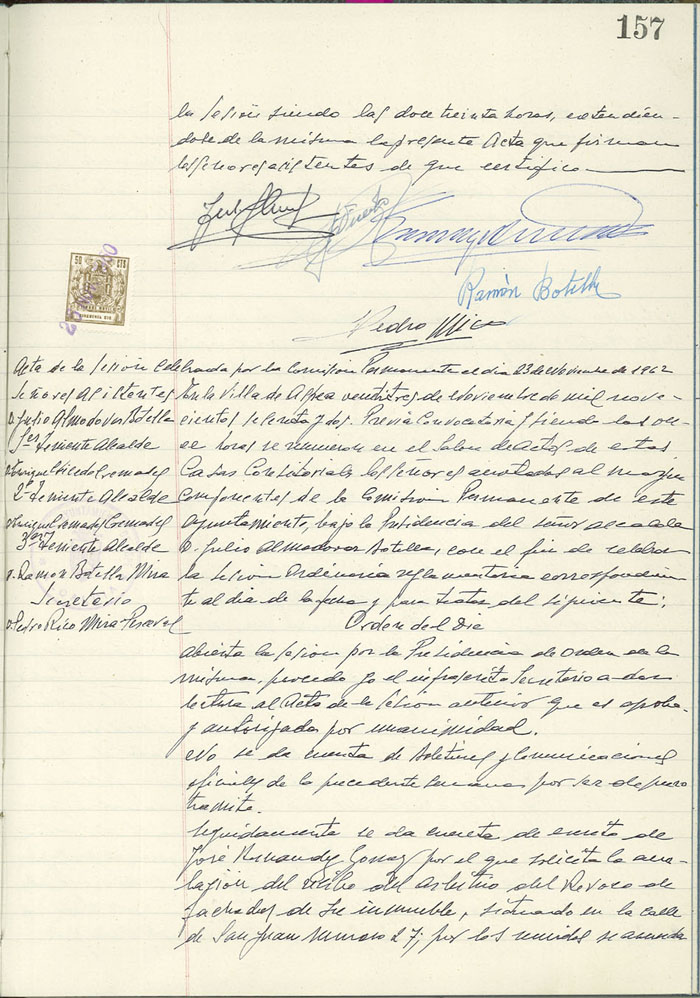 157
la sesión siendo las doce treinta horas, extendien-
dose de la misma la presente Acta que firman
los señores asistentes de que certifico.
Ramón Botella
Pedro Rico
50 CTS
Acta de la sesión celebrada por la Comisión Permanente el dia 23 de Noviembre de 1962
Señores Asistentes
D. Julio Almodovar Botella
1er Teniente Alcalde
2º Teniente Alcalde
D. Enrique Cremades Cremades
3er Teniente Alcalde
D. Ramón Botella Mira
Secretario
D. Pedro Rico Mira-Perceval
En la Villa de Aspe a veintitres de Noviembre de mil nove-
cientos sesenta y dos. Previa Convocatoria y siendo las on-
ce horas se reunieron en el Salon de actos de estas
Casas Consistoriales los señores anotados al margen
componentes de la Comisión Permanente de este
Ayuntamiento, bajo la Presidencia del señor alcalde
D. Julio Almodovar Botella, con el fin de celebrar
la sesión Ordinaria reglamentaria correspondien-
te al dia de la fecha y para tratar del siguiente:
Orden del Dia
Abierta la sesion por la Presidencia de orden de la
misma, procedo yo el infrascrito Secretario a dar
lectura al Acta de la sesion anterior que es aproba-
y autorizada por unanimidad.
No se da cuenta de Boletines y Comunicaciones
oficiales de la precedente semana por ser de puro
tramite.
Seguidamente se da cuenta de escrito de
José Hernandez Gomez por el que solicita la anu-
lación del recibo del Arbitrio del Revoco de
fachadas de su inmueble, situado en la calle
de San Juan numero 27; por los reunidos se acuerda